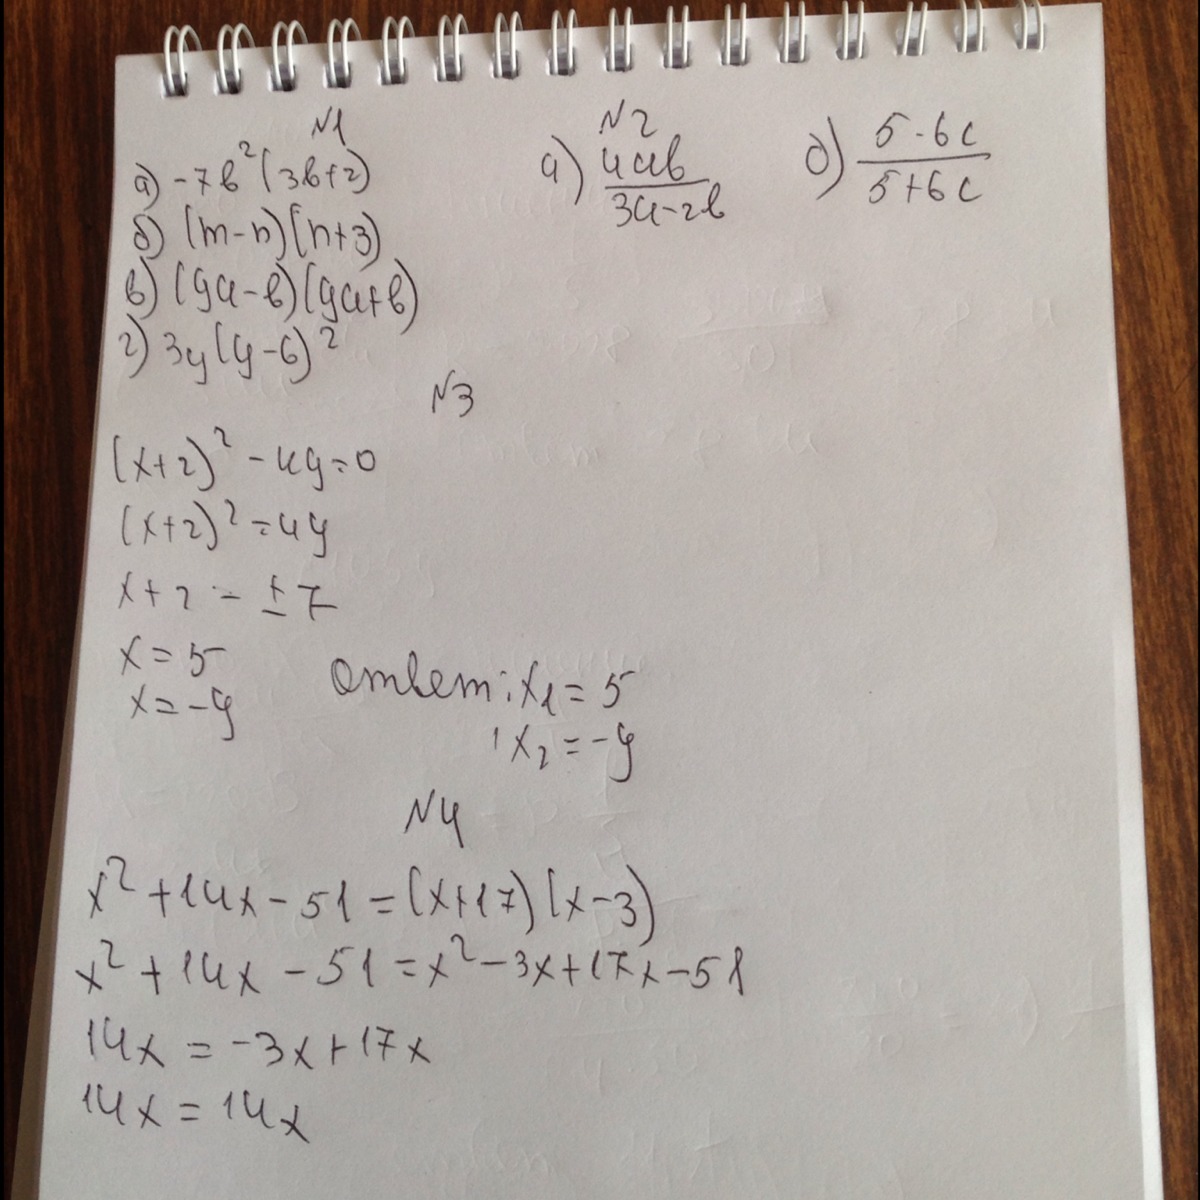 N1
а) -7b²(3b+2)
б) (m-n)(n+3)
в) (9a-b)(9a+b)
г) 3y(y-6)²
N2
а) 4ab/3a-2b
б) 5-6c/5+6c
N3
(x+2)²-49=0
(x+2)²=49
x+2=±7
x=5
x=-9
Ответ: x₁=5
x₂=-9
N4
x²+14x-51=(x+17)(x-3)
x²+14x-51=x²-3x+17x-51
14x=-3x+17x
14x=14x